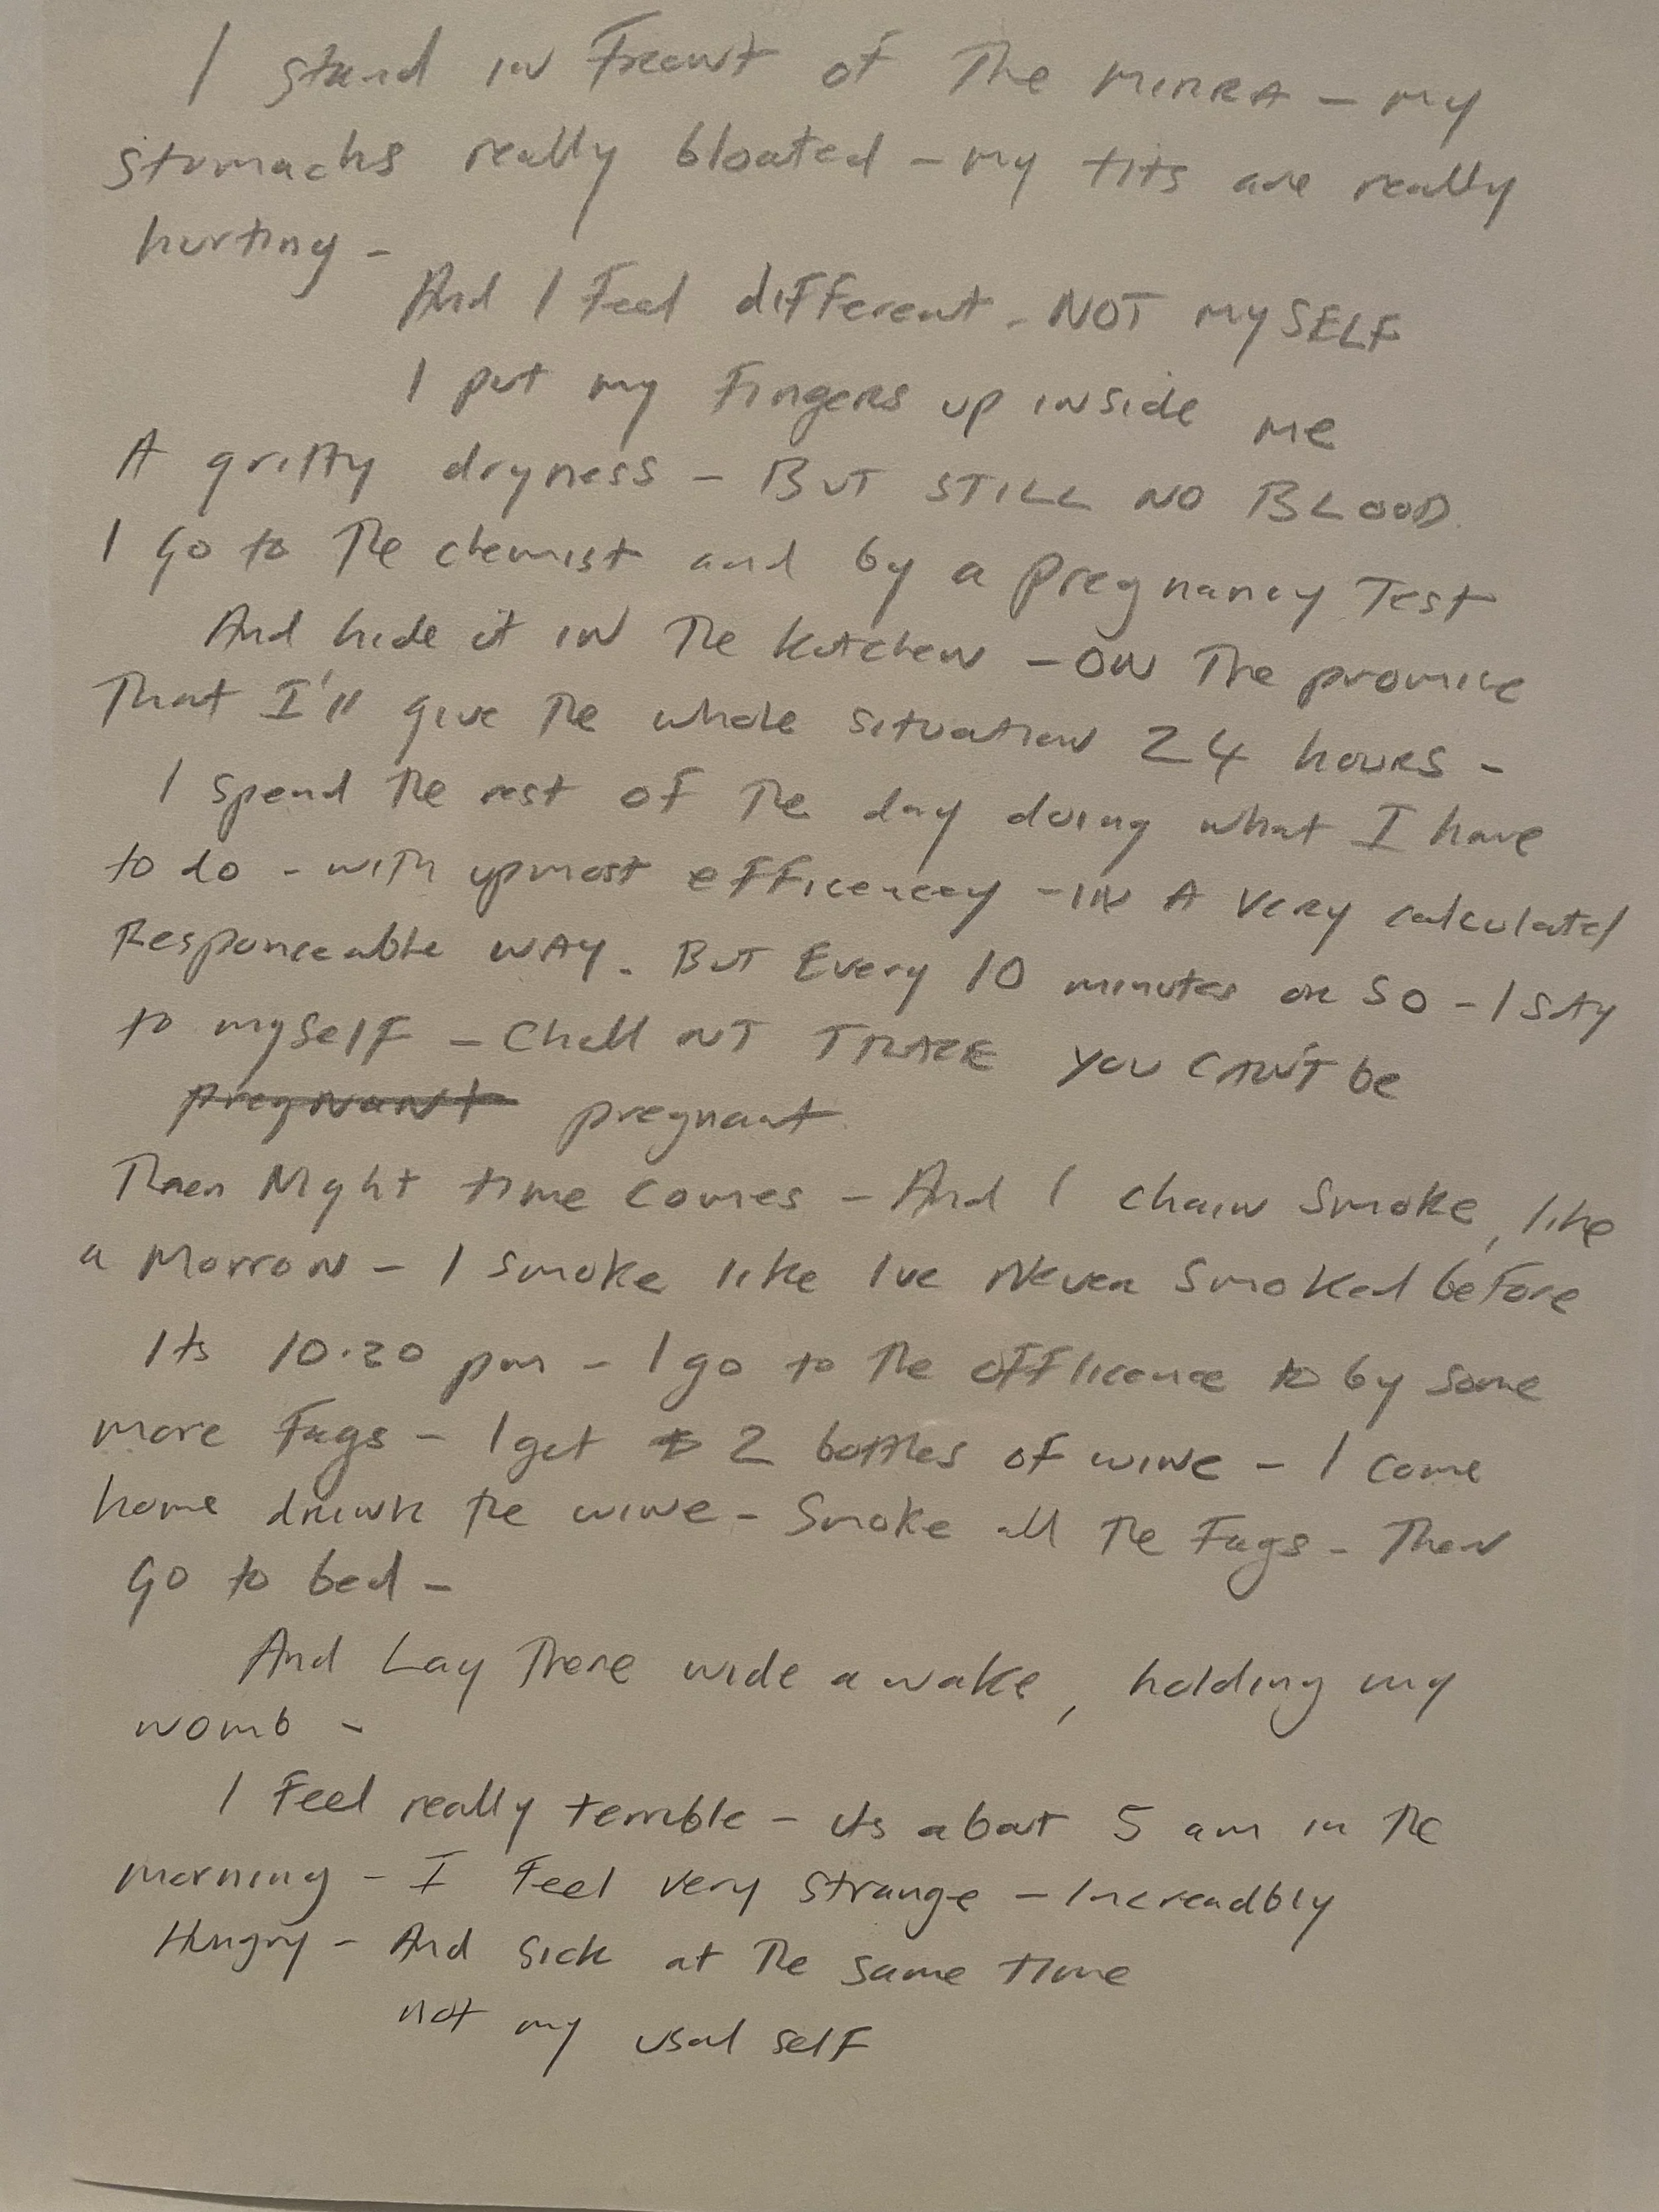 I stand in Freowt of The MIRRA - my
stomachs really bloated - my tits are really
hurting -
And I Feel different. NOT MySELF
I put my Fingers up inside me
A gritty dryness - BUT STILL NO BLOOD.
I go to The chemist and by a pregnancy Test
And hide it IN The kitchen - ON The promice
That I'll give The whole situation 24 hours -
I spend The rest of The day doing what I have
to do - with upmost efficencey - IN A Very calculated
Responceable WAY. BUT Every 10 minutes or So - I SAy
to mySelF - Chill OUT TRACE you CAN'T be
pregnant pregnant.
Then Night time comes - And I chain Smoke, like
a Morron - I smoke like Ive Never Smoked before
Its 10.20 pm - I go to The offlicence to by some
more Fags - I get 2 bottles of wine - I come
home drink The wine - Smoke all The Fags - Then
Go to bed -
And Lay There wide awake, holding my
womb -
I Feel really terrible - its abaut 5 am in The
morning - I Feel very strange - Increadbly
Hungry - And Sick at The same Time
not my usal self